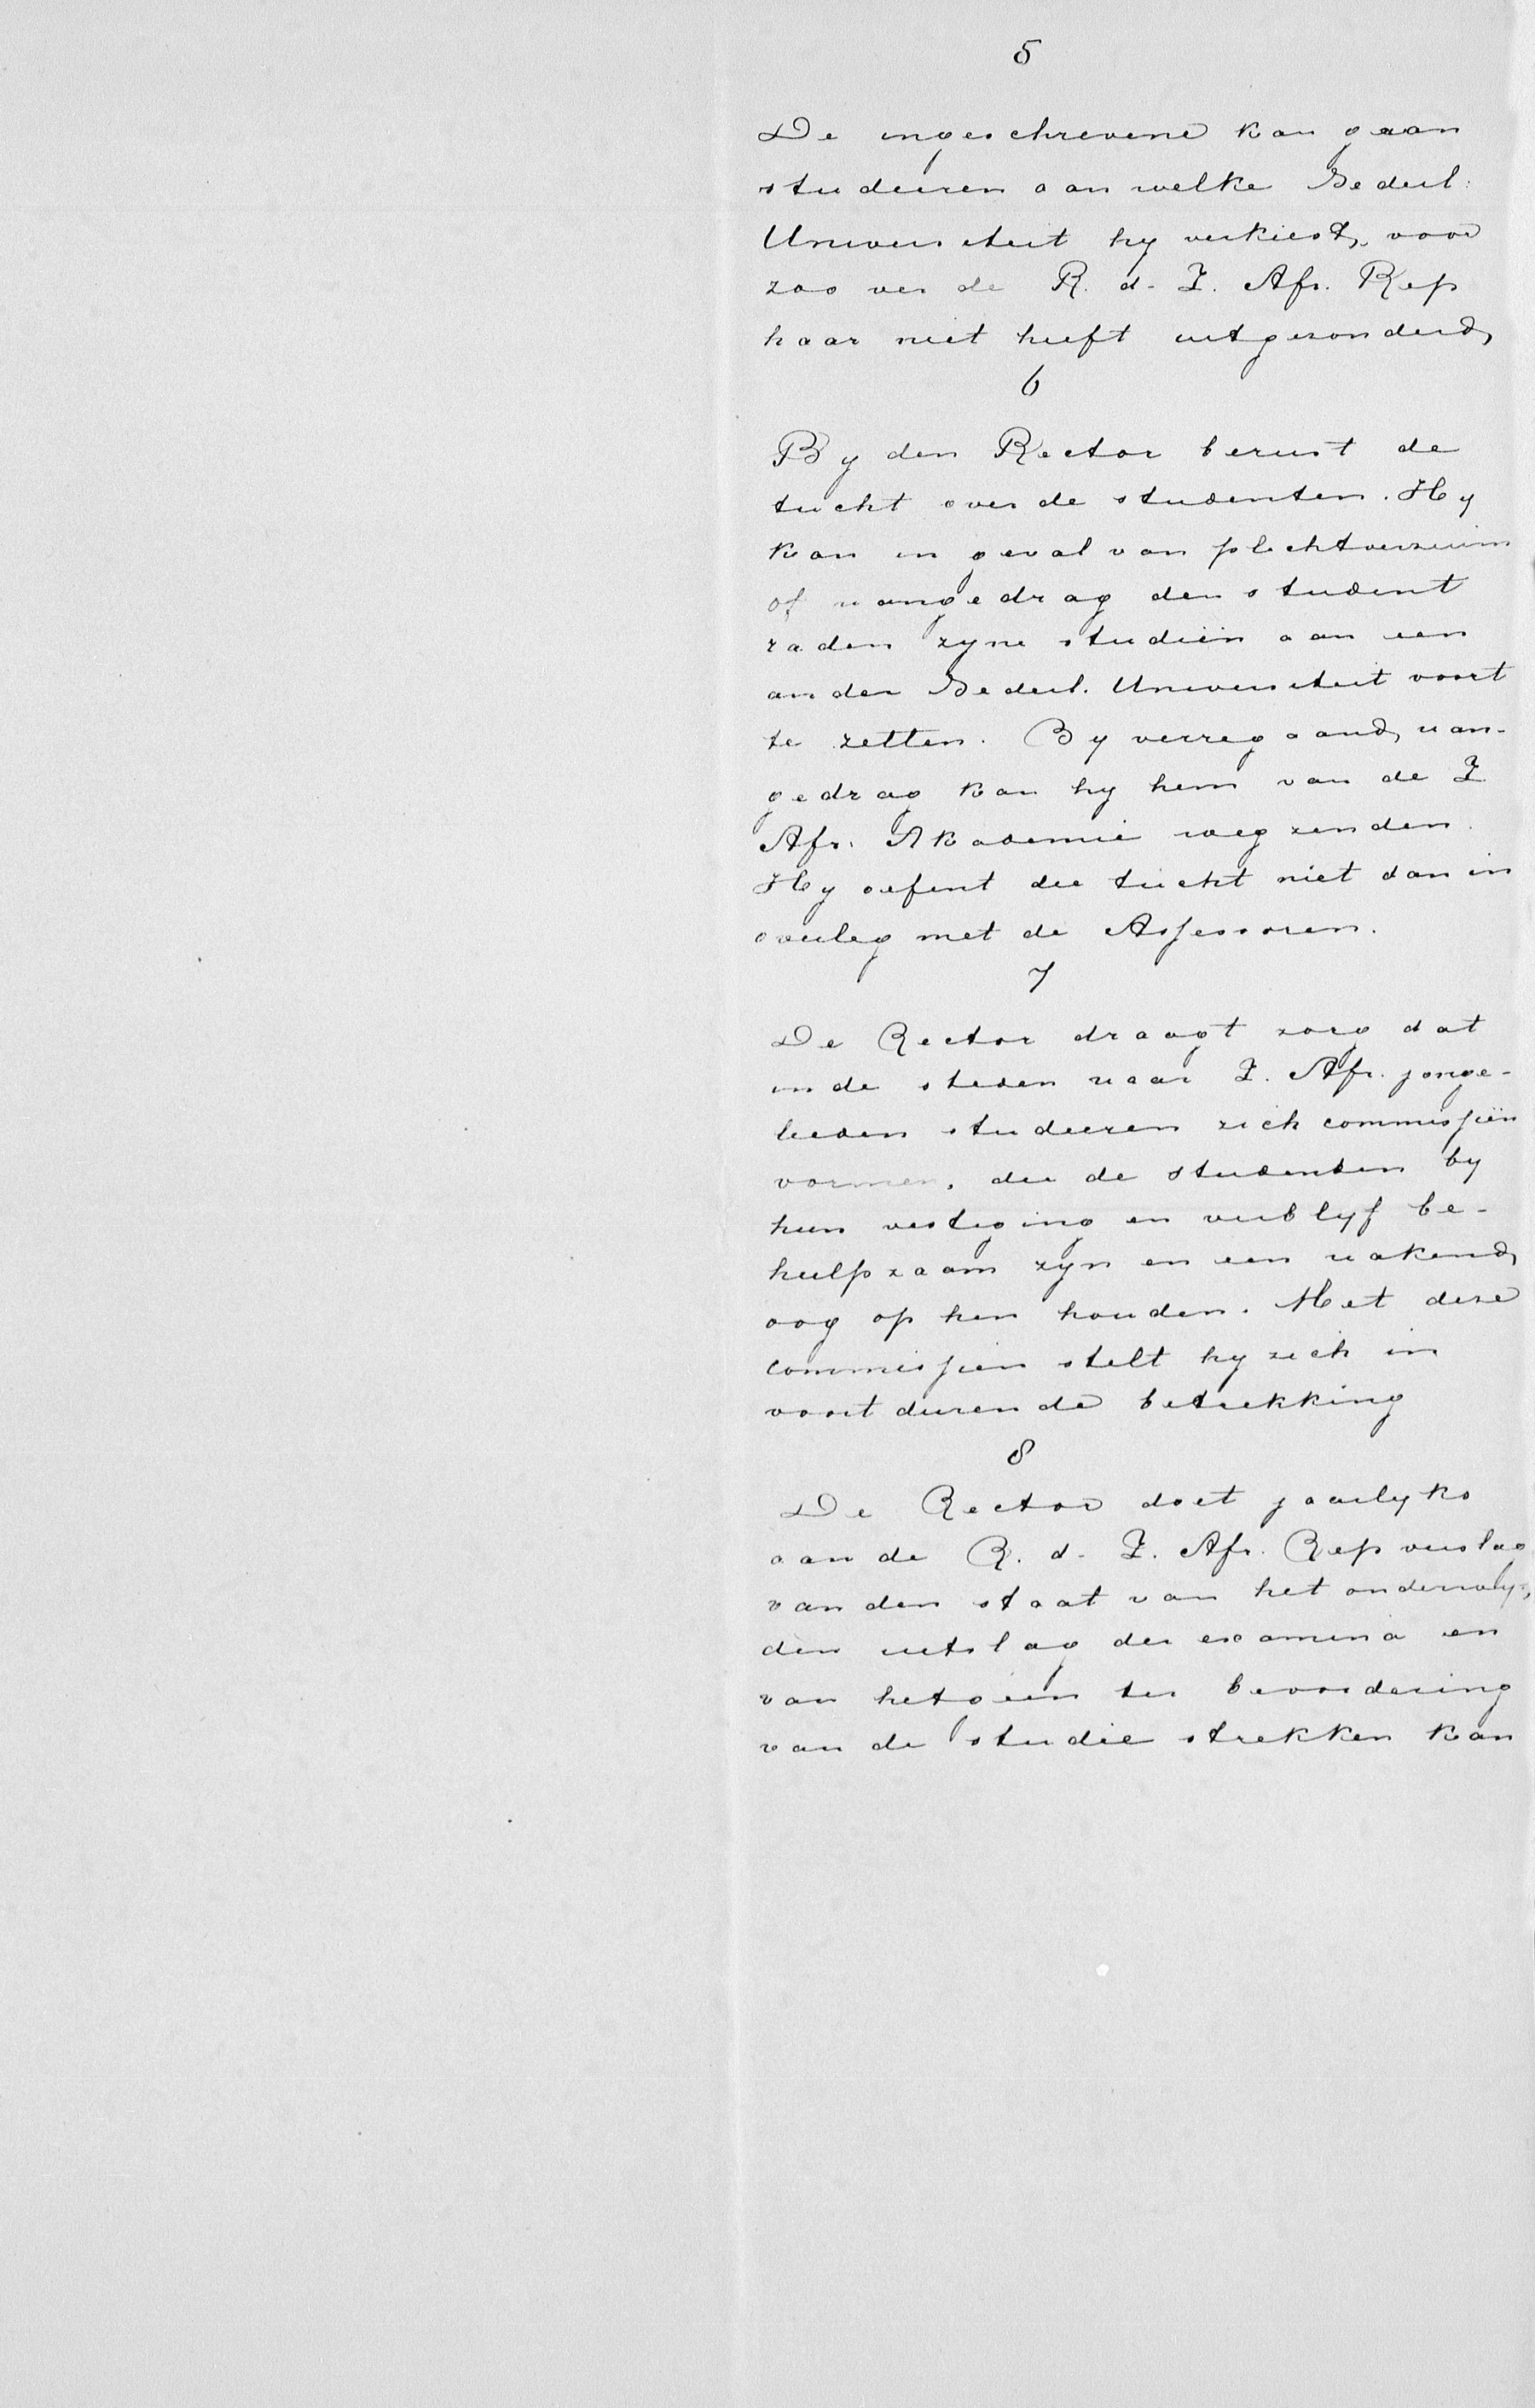 5
De ingeschrevene kan gaan
studeeren aan welke Nederl:
Universiteit hy verkiest, voor
zoo ver de R. d. Z. Afr. Rep
haar niet heeft uitgezonderd,
6
By den Rector berust de
tucht over de studenten. Hy
kan in geval van plichtverzuim
of wangedrag den student
raden zyne studiën aan een
ander Nederl. Universiteit voort
te zetten. By verregaand wan-
gedrag kan hy hem van de Z
Afr. Akademie weg zenden.
Hy oefent die tucht niet dan in
overleg met de Assessoren.
7
De Rector draagt zorg dat
in de steden waar Z. Afr. jonge-
lieden studeeren zich commissiën
vormen, die de studenten by
hun vestiging en verblyf be-
hulpzaam zyn en een wakend
oog op hen houden. Met deze
commissien stelt hy zich in
voortdurende betrekking
8
De Rector doet jaarlyks
aan de R. d. Z. Afr. Rep verslag
van den staat van het onderwys,
den uitslag der examina en
van hetgeen ter bevordering
van de studie strekken kan